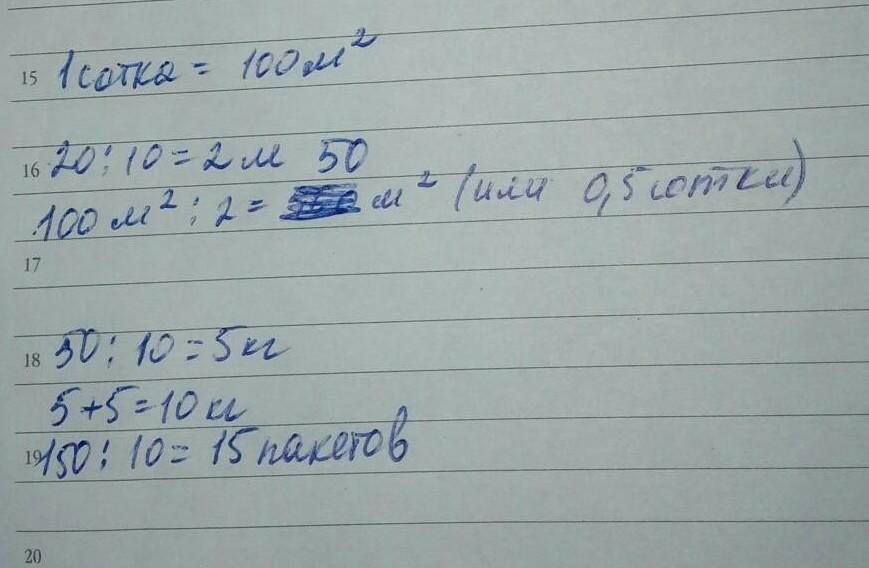 15 1 сотка = 100 м²
16 20 : 10 = 2 м 50
100 м² : 2 = м² (или 0,5 сотки)
17
18 50 : 10 = 5 кг
5 + 5 = 10 кг
19 150 : 10 = 15 пакетов
20